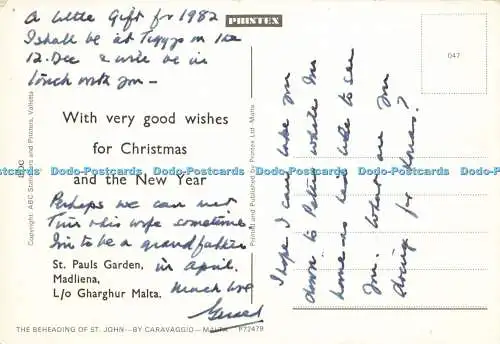 A little Gift for 1982
I shall be at Tiggys on the
12. Dec & will be in
touch with you -
With very good wishes
for Christmas
and the New Year
Perhaps we can meet
Tim & his wife sometime
I'm to be a grandfather
in April.
Much love
Gerard
St. Pauls Garden,
Madliena,
L/o Gharghur Malta.
THE BEHEADING OF ST. JOHN—BY CARAVAGGIO—MALTA P72479
Copyright: ABC Stationers and Printers, Valletta
PRINTEX
Printed and Published by Printex Ltd. Malta
047
I hope I can take you
down to Peter while I'm
home - he'd like to see
you. What are you
doing for Xmas?
Dodo-Postcards Dodo-Postcards Dodo-Postcards Dodo-Postcards Dodo-Postcards